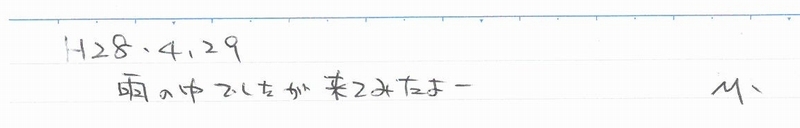 H28.4.29
雨の中でしたが来てみたよー M、